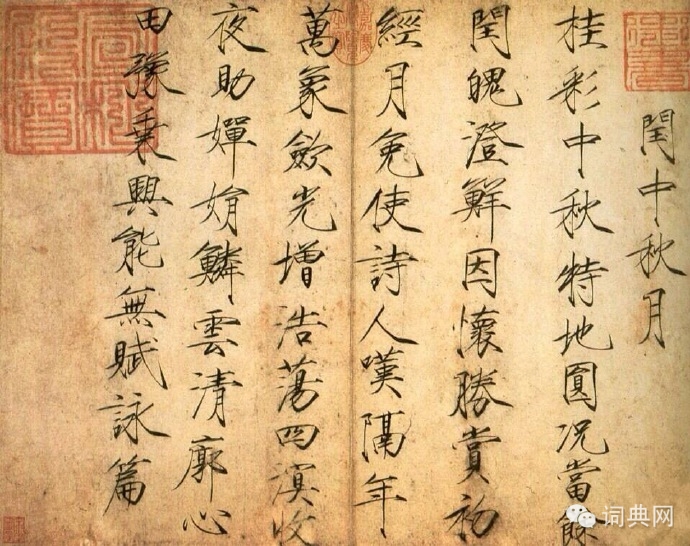 閏中秋月
桂彩中秋特地圓况當餘
閏魄澄鮮因懷勝賞初
經月免使詩人嘆隔年
萬象歛光增浩蕩四溟收
夜助嬋娟鱗雲清廓心
田豫乘興能無賦詠篇
词典网